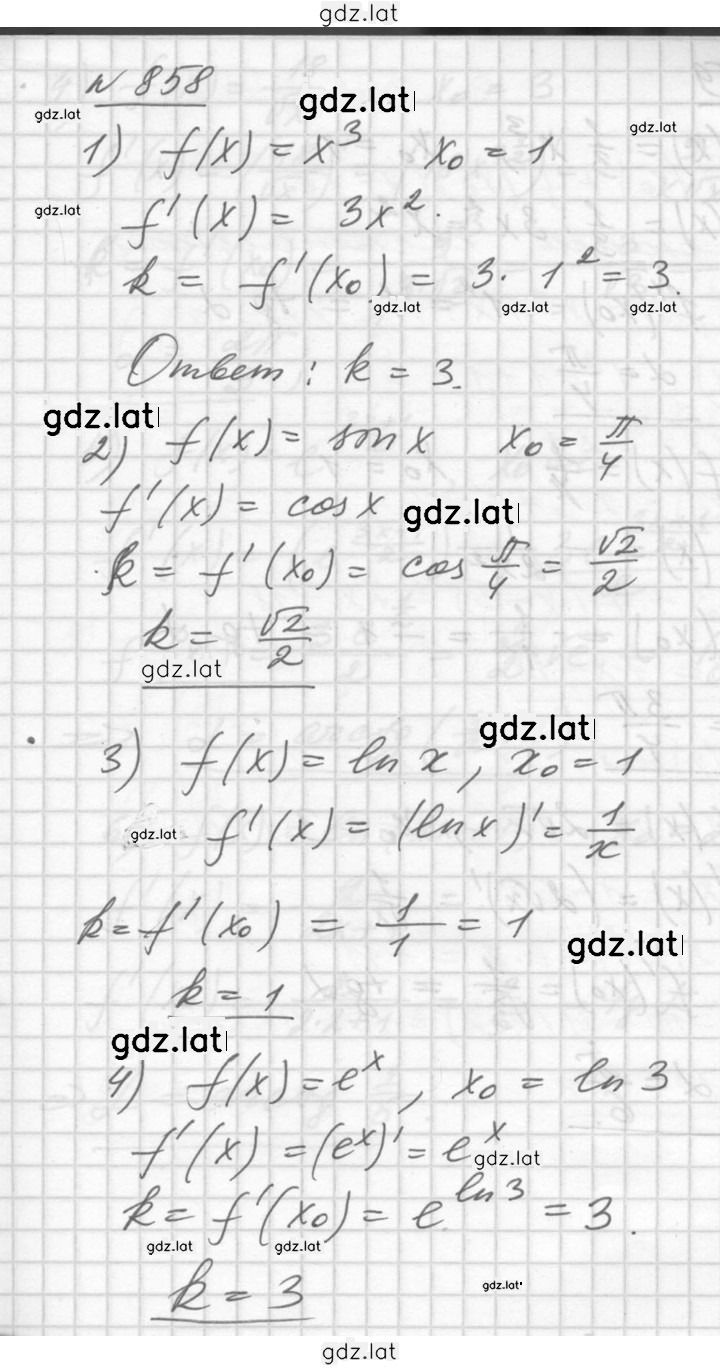 gdz.lat
№ 858
gdz.lat
gdz.lat
gdz.lat
1) f(x) = x³ x₀ = 1
gdz.lat
f'(x) = 3x².
k = f'(x₀) = 3 · 1² = 3.
gdz.lat gdz.lat gdz.lat
Ответ: k = 3.
gdz.lat
2) f(x) = sin x x₀ = π/4
f'(x) = cos x
gdz.lat
k = f'(x₀) = cos π/4 = √2/2
k = √2/2
gdz.lat
gdz.lat
3) f(x) = ln x, x₀ = 1
gdz.lat
f'(x) = (ln x)' = 1/x
k = f'(x₀) = 1/1 = 1
gdz.lat
k = 1
gdz.lat
4) f(x) = eˣ, x₀ = ln 3
f'(x) = (eˣ)' = eˣ
gdz.lat
k = f'(x₀) = e^(ln 3) = 3.
gdz.lat gdz.lat
k = 3
gdz.lat
gdz.lat